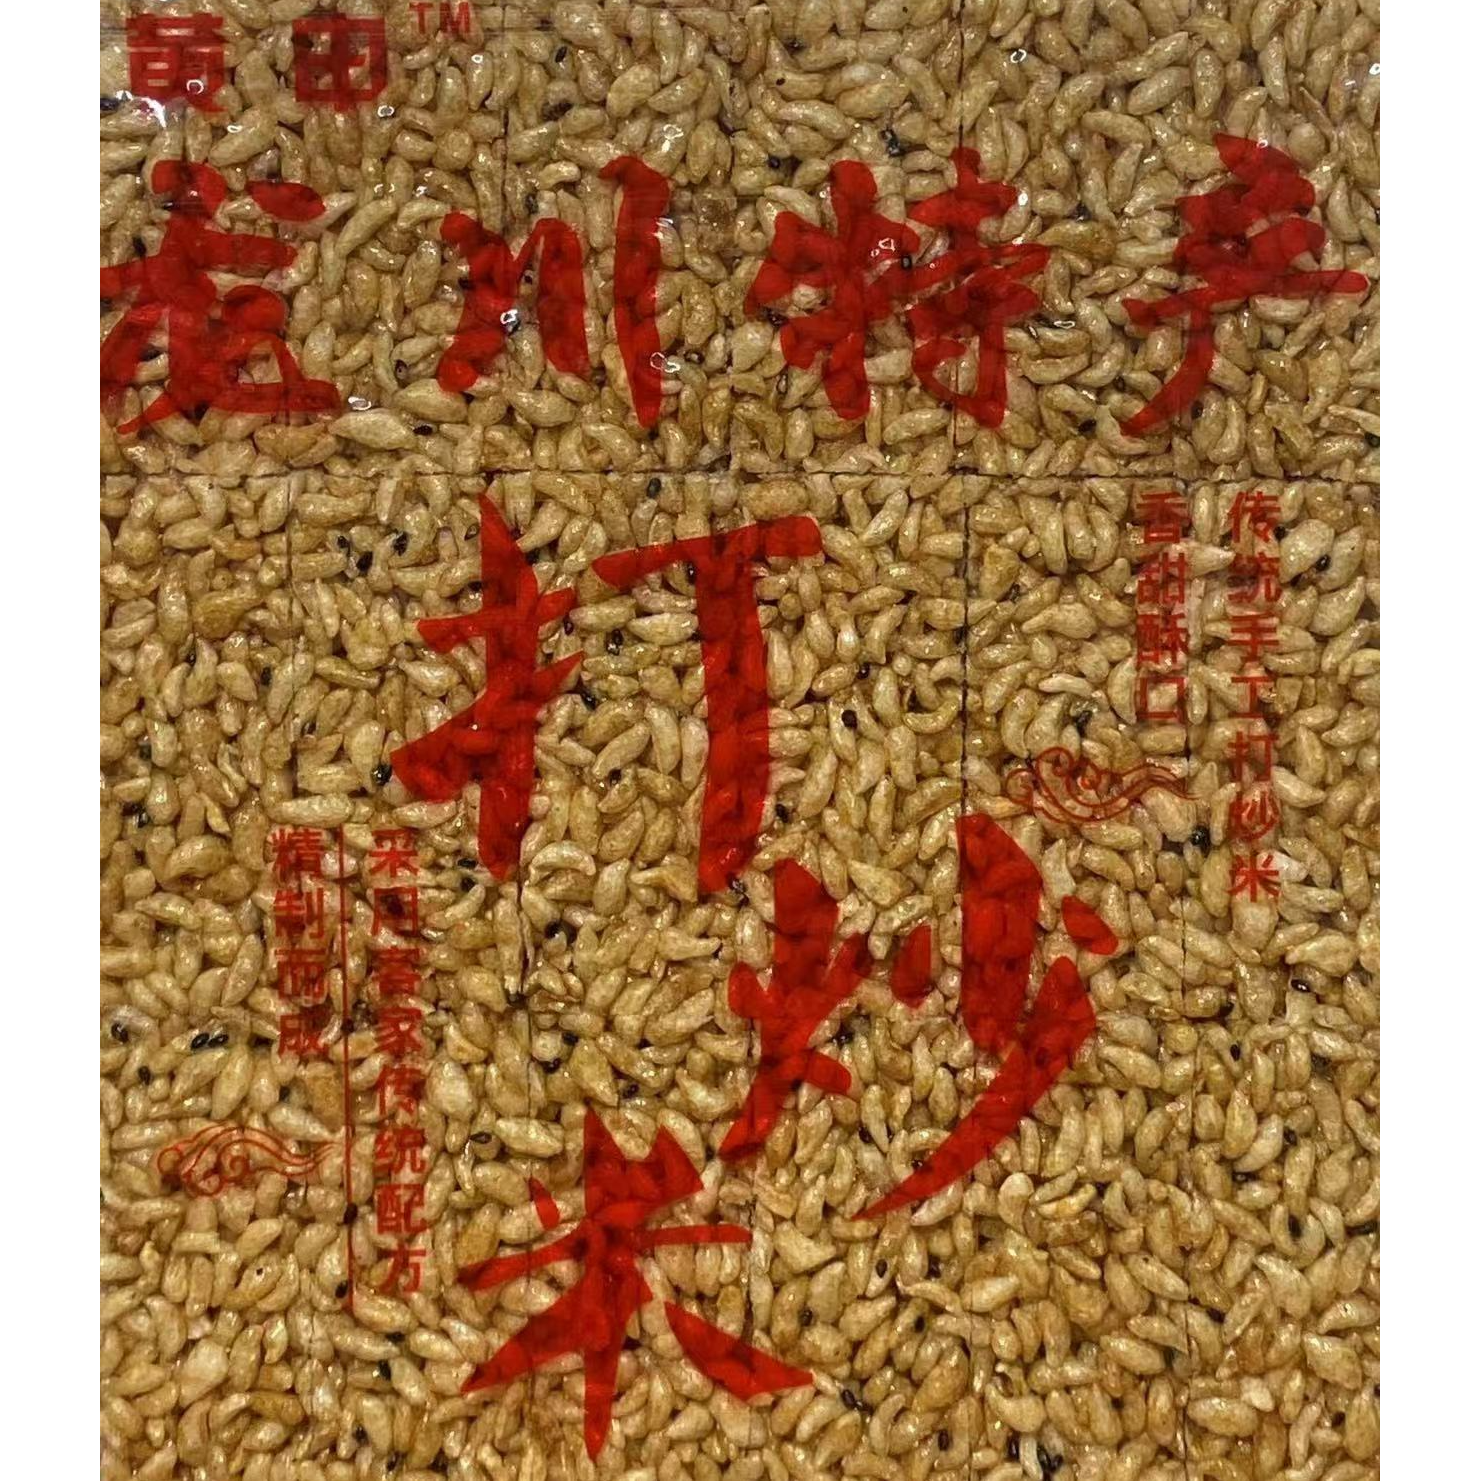 黄田™
龙川特产
传统手工打炒米
香甜酥口
打炒米
采用客家传统配方
精制而成